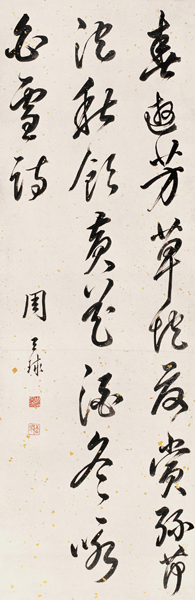 春遊芳草地夏賞綠荷
池秋飲黃花酒冬咏
白雪詩
周天球